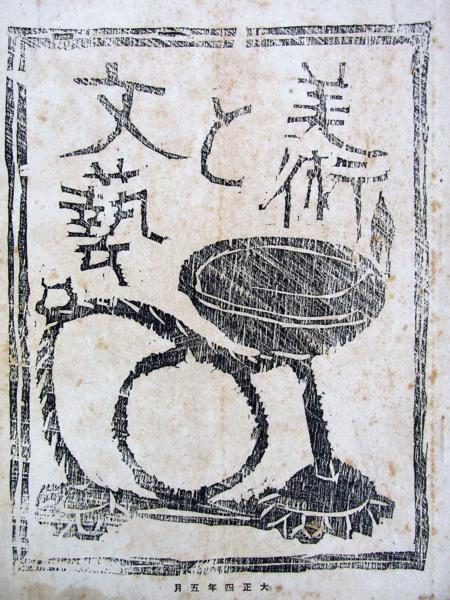 美術
と
文藝
大正四年五月